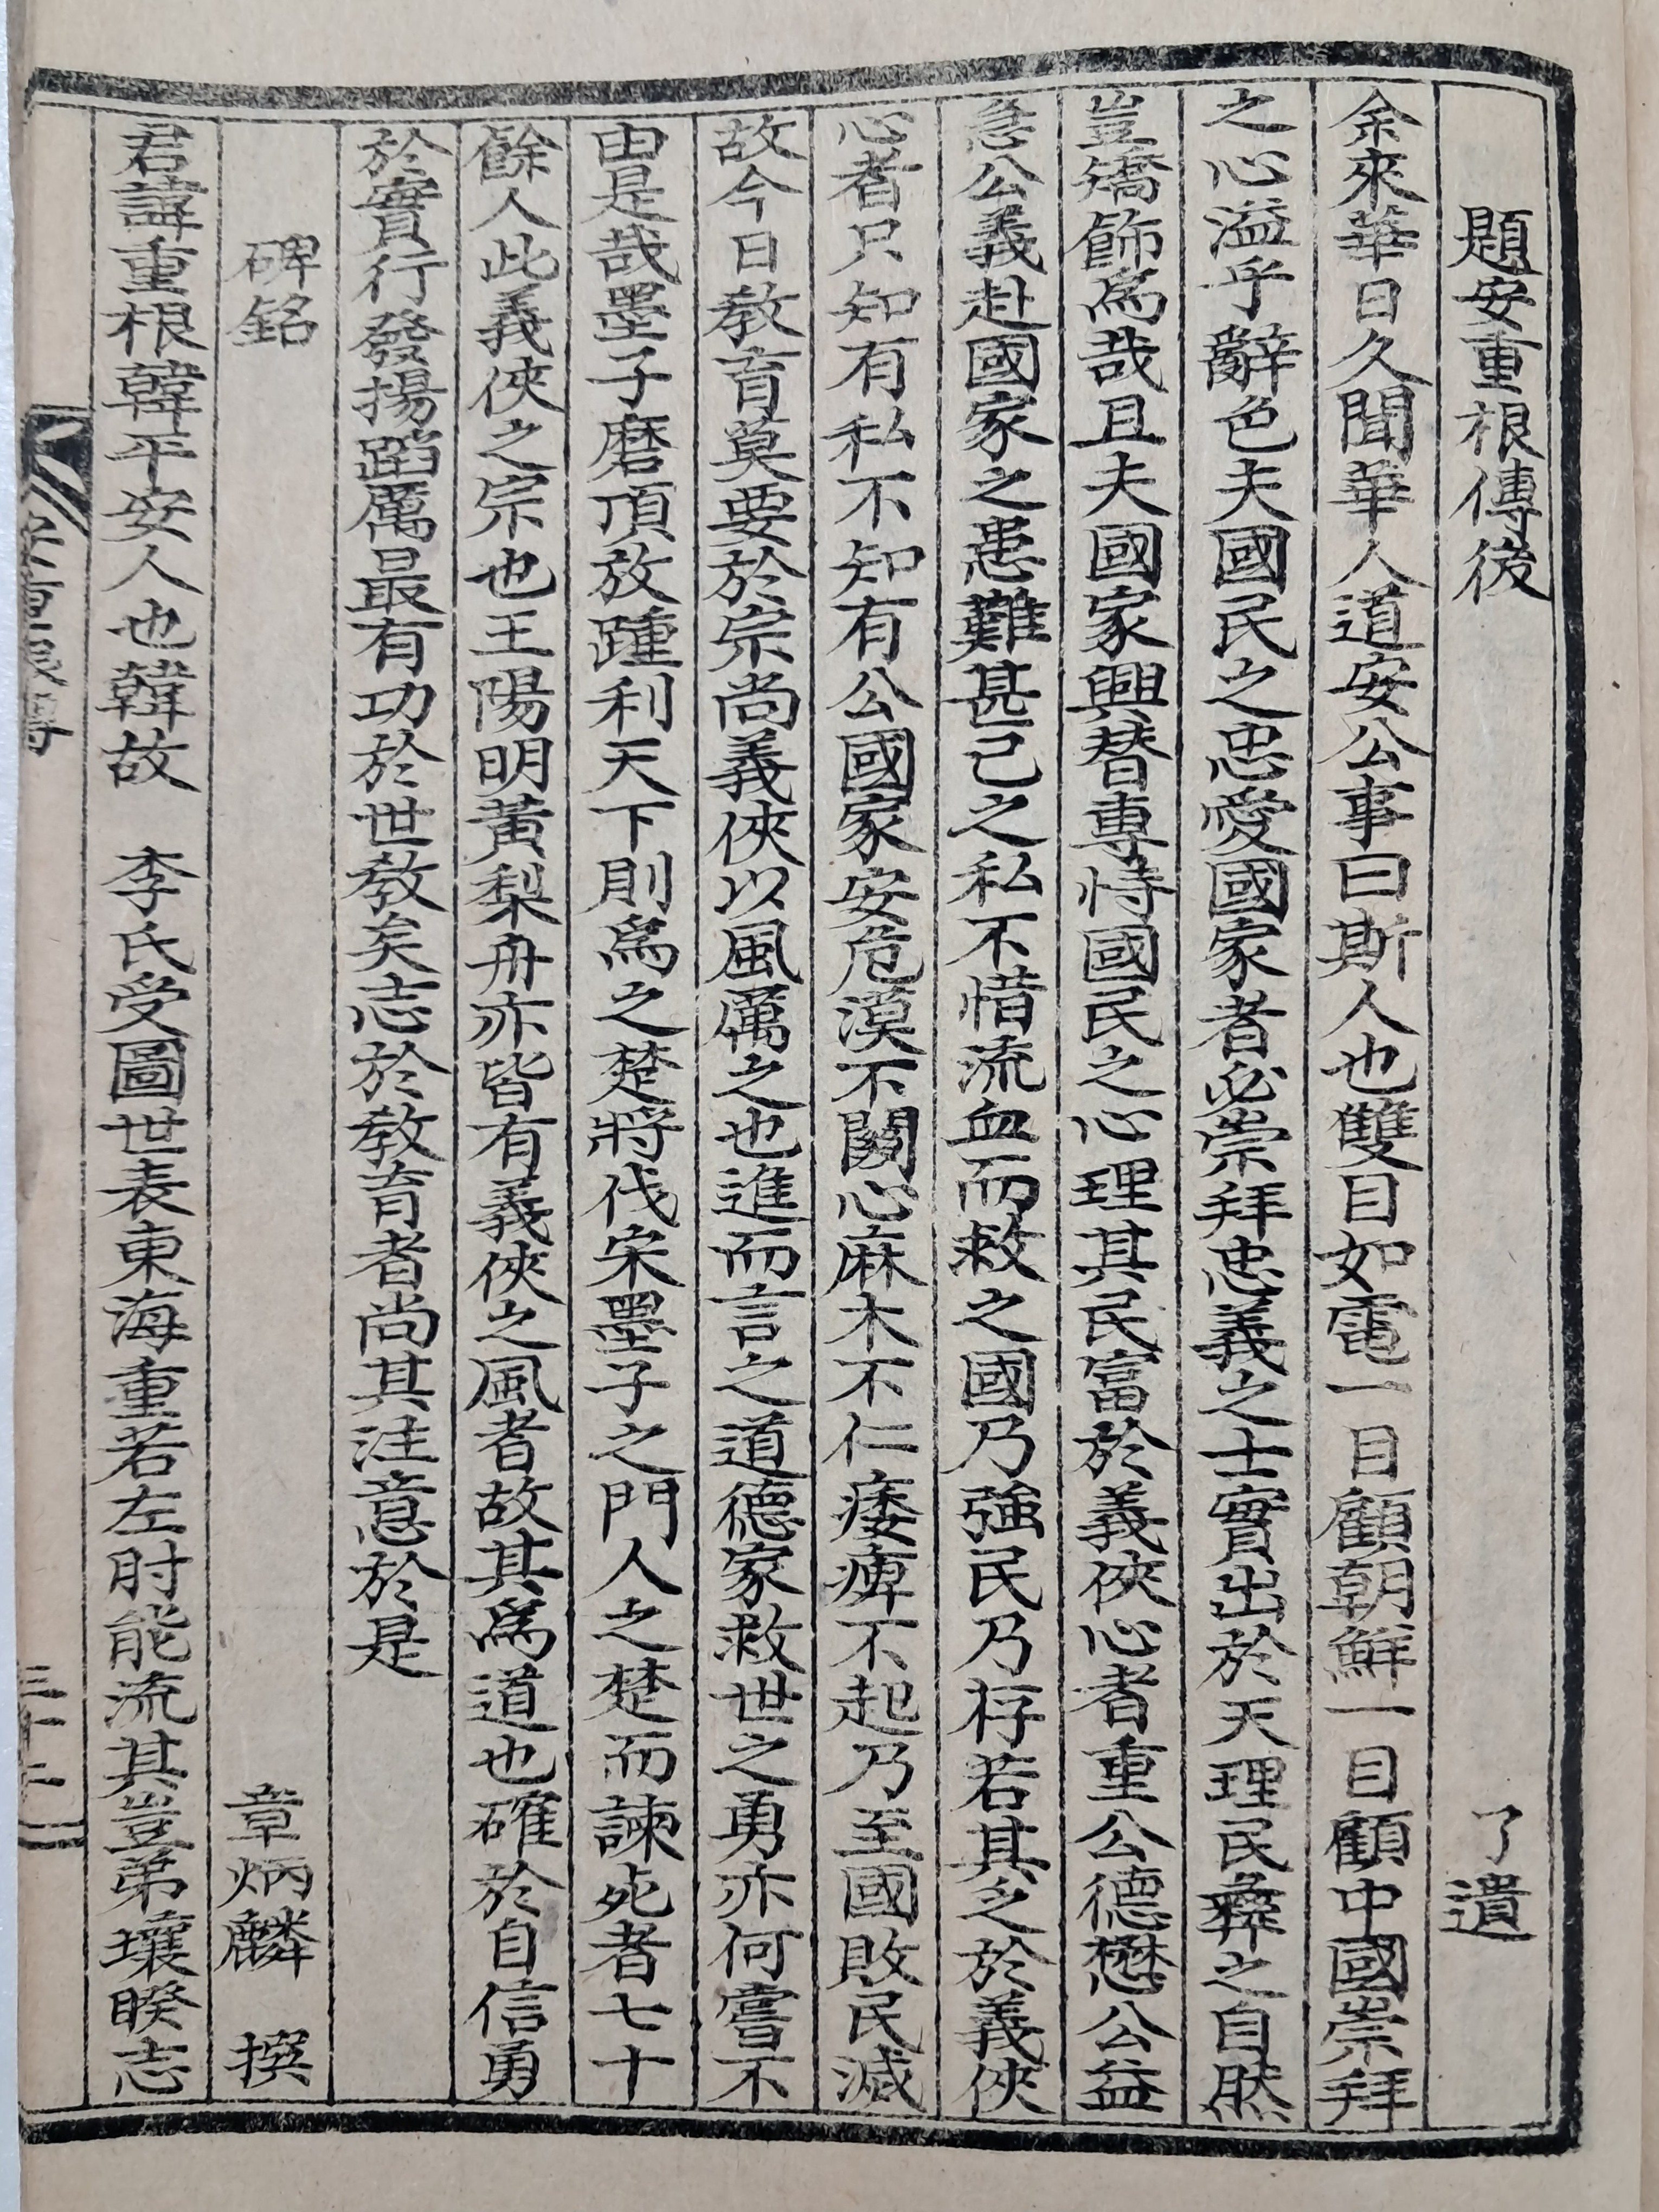 題安重根傳後 了遺
余來華日久聞華人道安公事曰斯人也雙目如電一目顧朝鮮一目顧中國崇拜
之心溢乎辭色夫國民之忠愛國家者必崇拜忠義之士實出於天理民彝之自然
豈矯飾爲哉且夫國家興替專恃國民之心理其民富於義俠心者重公德懋公益
急公義赴國家之患難甚己之私不惜流血而救之國乃強民乃存若其乏於義俠
心者只知有私不知有公國家安危漠不關心麻木不仁痿痺不起乃至國敗民滅
故今日教育莫要於宗尚義俠以風厲之也進而言之道德家救世之勇亦何嘗不
由是哉墨子磨頂放踵利天下則爲之楚將伐宋墨子之門人之楚而諫死者七十
餘人此義俠之宗也王陽明黃梨舟亦皆有義俠之風者故其爲道也確於自信勇
於實行發揚蹈厲最有功於世教矣志於教育者尚其注意於是
碑銘 章炳麟 撰
君諱重根韓平安人也韓故 李氏受圖世表東海重若左肘能流其豈弟壤睽志
安重根傳 三十二